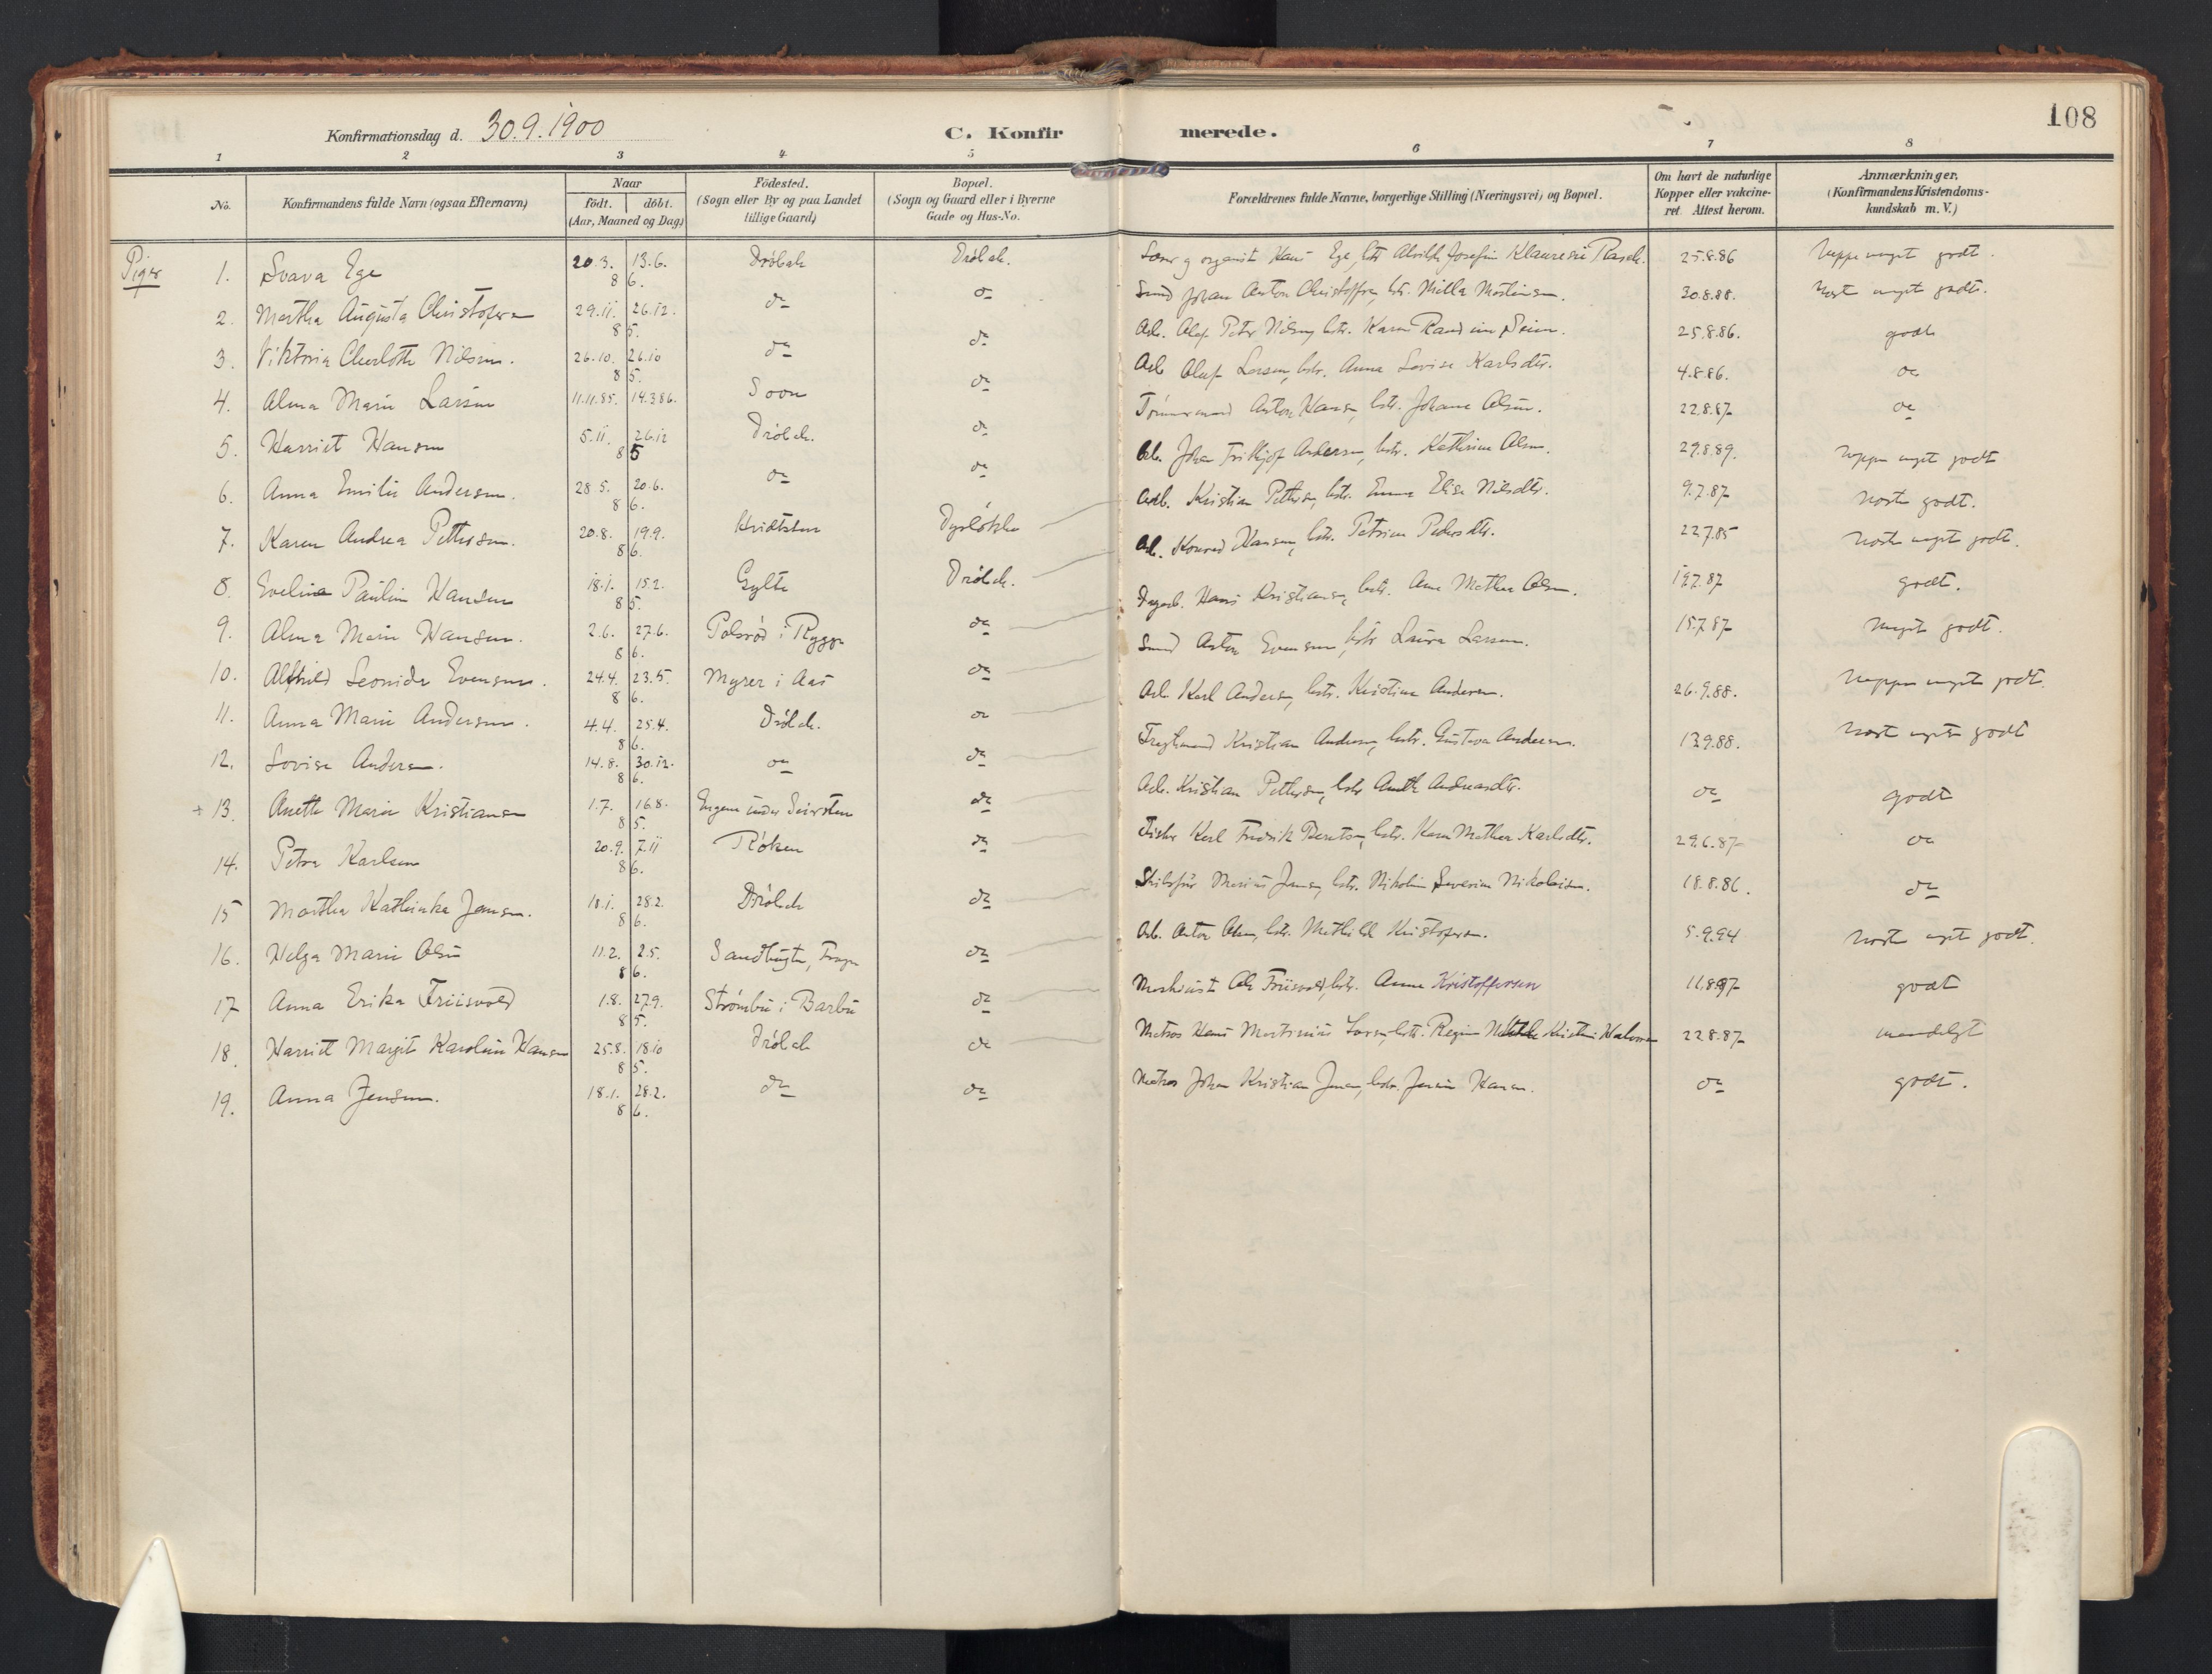 108
Konfirmationsdag d. 30.9.1900 C. Konfir merede.
1 2 3 4 5 6 7 8
No. Konfirmandens fulde Navn (ogsaa Efternavn) Naar födt. döbt. (Aar, Maaned og Dag) Födested. (Sogn eller By og paa Landet tillige Gaard) Bopæl. (Sogn og Gaard eller i Byerne Gade og Hus-No. Forældrenes fulde Navne, borgerlige Stilling (Næringsvei) og Bopæl. Om havt de naturlige Kopper eller vakcineret. Attest herom. Anmærkninger, (Konfirmandens Kristendomskundskab m. V.)
Piger 1. Svava Ege 20.3. 13.6. 86. Drøbak Drøbak. organist Hans Ege, 25.8.86 godt.
2. Martha Augusta Christofersen 29.11. 26.12. 85. do do Johan Anton Christoffersen, hstr. Milla 30.8.88. godt.
3. Viktoria Charlotte Nilsen. 26.10. 26.10 85. do do Arb. Olaf Peter Nilsen, hstr. Karen 25.8.86. godt
4. Alma Marie Larsen 11.11.85. 14.3.86. Soon do Arb. Oluf Larsen, hstr. Anna Lovise Karlsdtr. 4.8.86. do
5. Harriet Hansen 5.11. 26.12 85 Drøbak. do Tømmermand Anton Hansen, hstr. Johanne Olsen. 22.8.87 do
6. Anna Emilie Andersen. 28.5. 20.6. 86. do do Arb. Johan Frithjof Andersen, hstr. Kathrine Olsen. 29.8.89. godt
7. Karen Andrea Pettersen. 20.8. 19.9. 86. Hvidtsten Dyrløkke Arb. Kristian Pettersen, hstr. Emma Elise Nilsdtr. 9.7.87 godt.
8. Eveline Pauline Hansen 18.1. 15.2. 85. Gylte Drøbak. Arb. Konrad Hansen, hstr. Petrine Pedersdtr. 22.7.85 godt.
9. Alma Marie Hansen. 2.6. 27.6. 86. Polsrød i Rygge do Hans Kristiansen, hstr. Ane Mathea Olsen. 19.7.87 godt.
10. Alfhild Leonide Evensen. 24.4. 23.5. 86. Myrer i Aas do Anton Evensen, hstr Laura Larsen. 15.7.87 Meget godt.
11. Anna Marie Andersen. 4.4. 25.4. 86. Drøbak. do Arb. Karl Andersen, hstr. Kristine Andersen. 26.9.88. godt.
12. Lovise Andersen. 14.8. 30.12. 86. do do Kristian Andersen, hstr. Gustava Andersen. 13.9.88. godt
+ 13. Anette Marie Kristiansen 1.7. 16.8. 85. do Arb. Kristian Pettersen, hstr Anette Andreasdtr. do godt
14. Petra Karlsen 20.9. 7.11 86. Røken do Fisker Karl Fredrik Berntsen, hstr. Karen Mathea Karlsdtr. 29.6.87 do
15 Martha Kathinka Jensen. 18.1. 28.2. 86. Drøbak do Skibsfür Marius Jensen, hstr. Nikoline Severine Nikolaisen. 18.8.86. do
16. Helga Marie Olsen 11.2. 2.5. 86. Sandbugten, Frogn do Arb. Anton Olsen, hstr. Mathilde Kristofersen. 5.9.94 godt.
17 Anna Erika Friisvold 1.8. 27.9. 85. Strømbu i Barbu do Maskinist Ole Friisvold, hstr. Anna Kristoffersen 11.8.97 godt
18. Harriet Margit Karoline Hansen 25.8. 18.10 85. Drøbak do Matros Hans Martinius 22.8.87 maadeligt
19. Anna Jensen. 18.1. 28.2. 86. do do Matros Johan Kristian Jensen, hstr. Hansen. do godt.